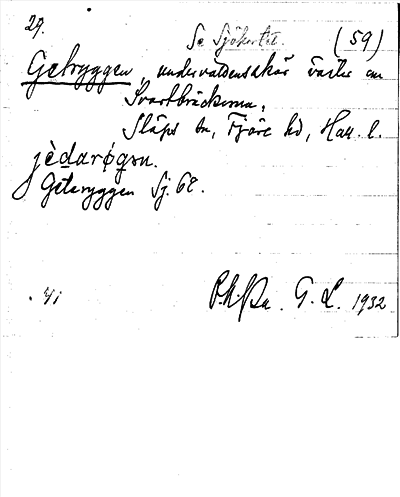 29.
Se Sjökortet. (59)
Getryggen, undervattensskär väster om
Svartbräckorna,
Släps sn, Fjäre hd, Hall. l.
jèdarøgən.
Geteryggen Sj. 68.
G. L. 1932